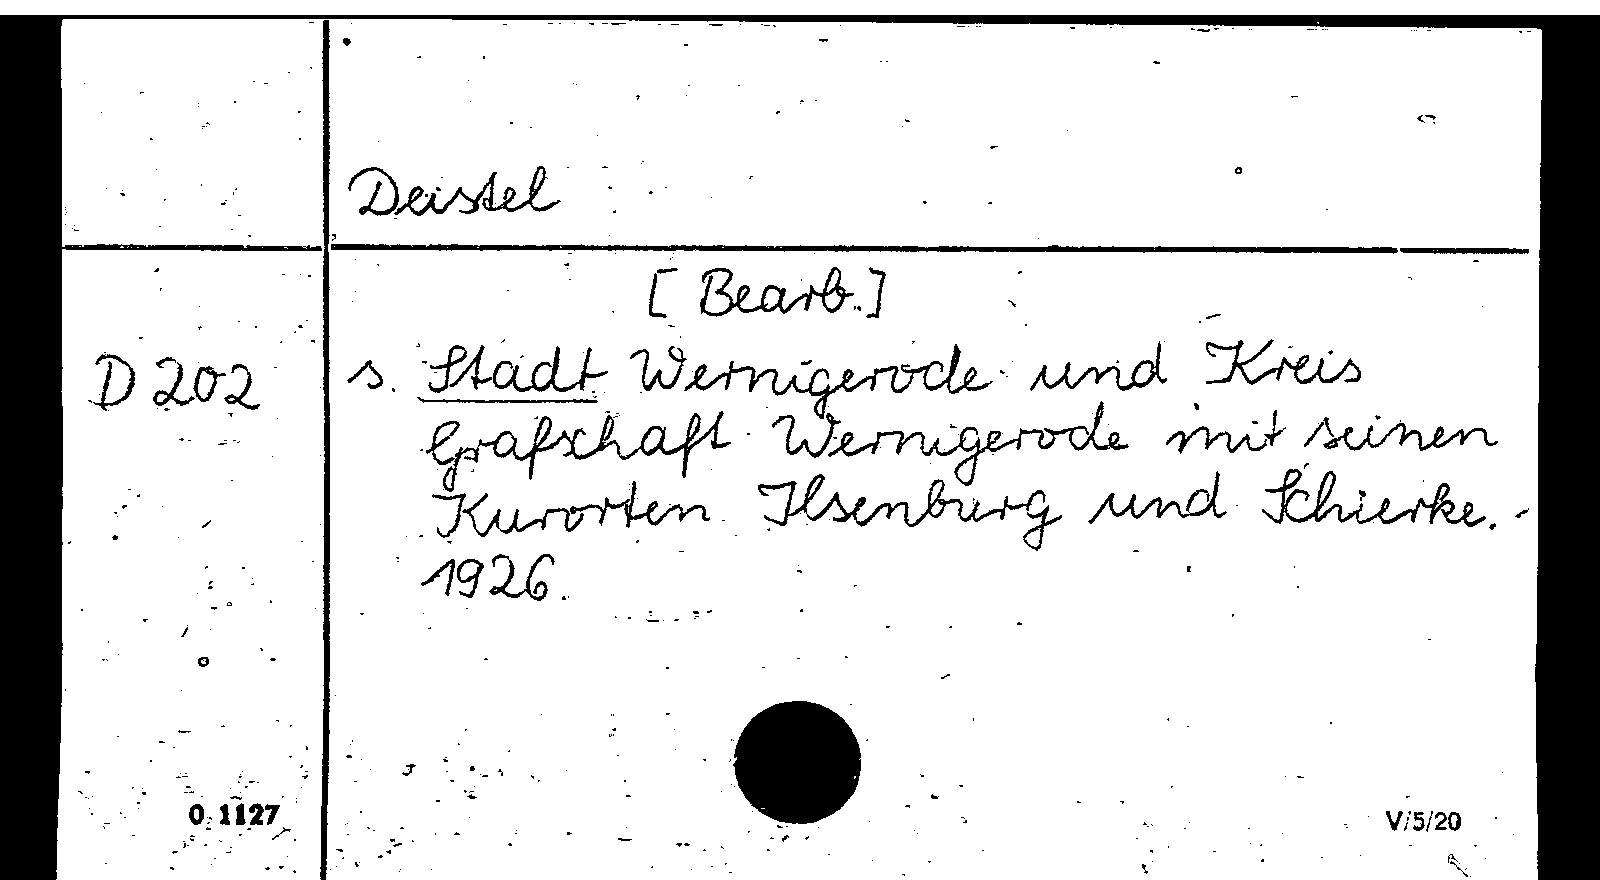 Deistel
[Bearb.]
D 202 s. Stadt Wernigerode und Kreis
Grafschaft Wernigerode mit seinen
Kurorten Ilsenburg und Schierke.-
1926.
0 1127 V/5/20